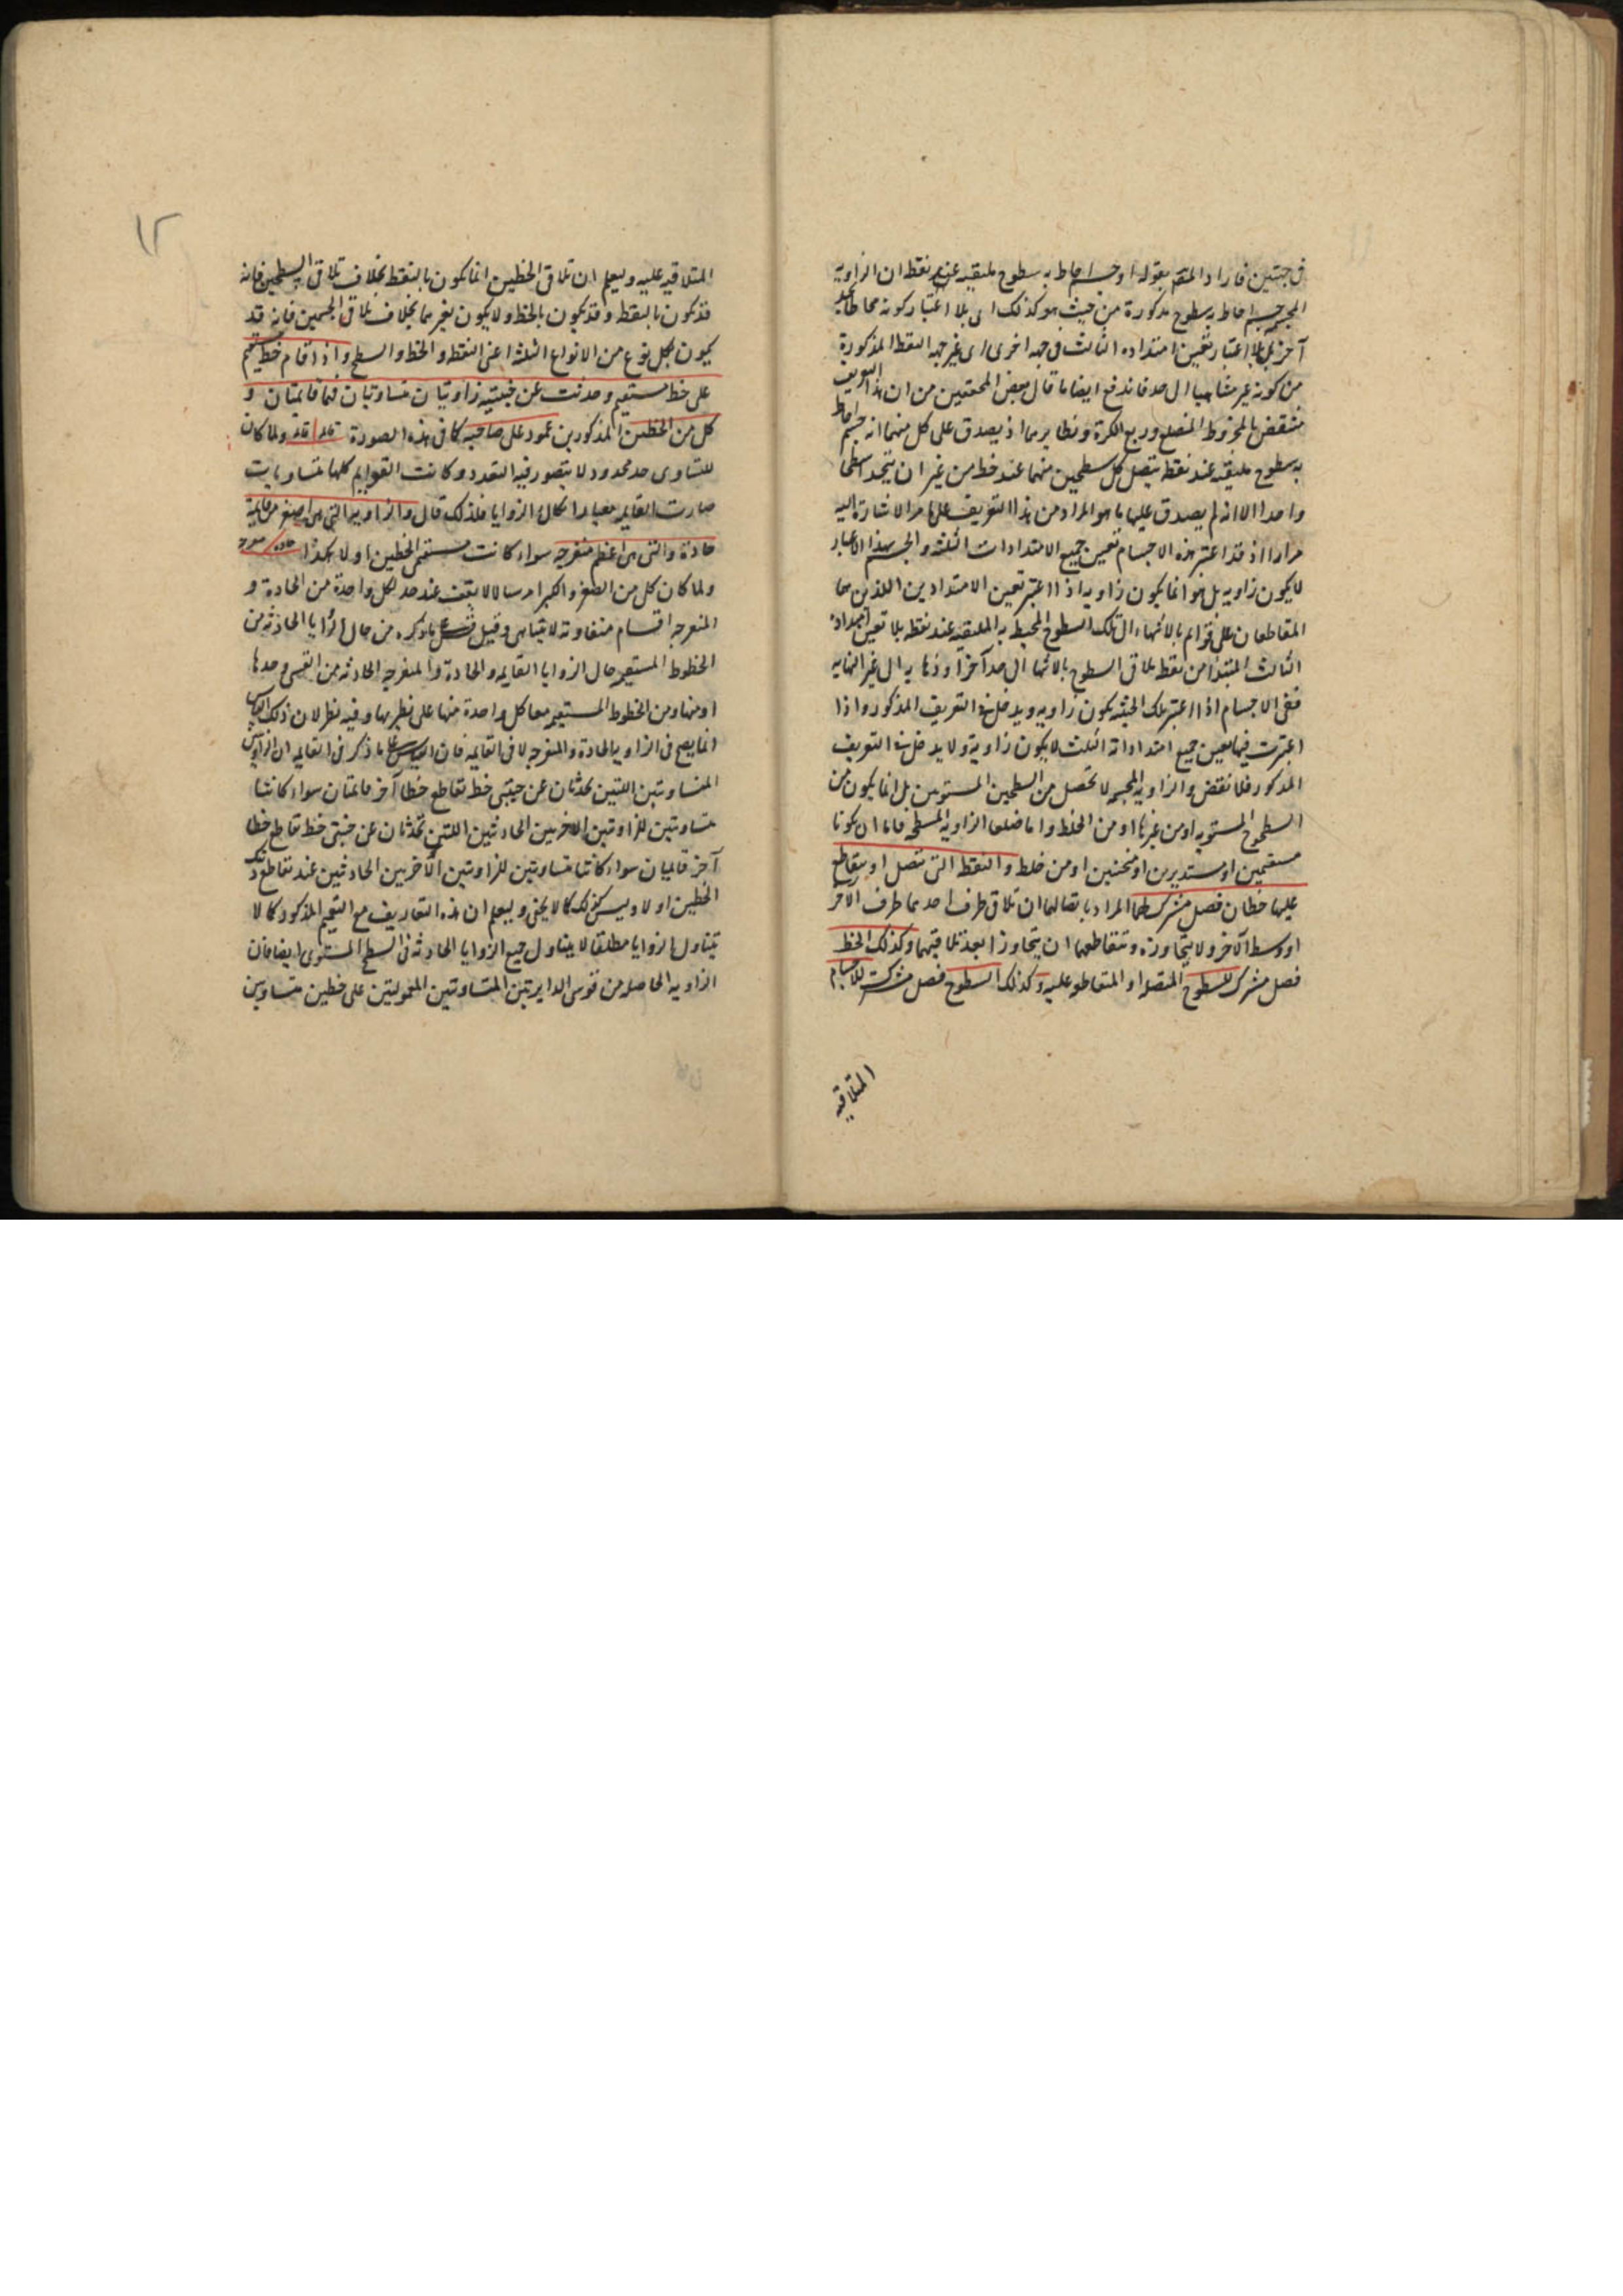 في جهتين فاراد المقم بقوله او جسم احاط به سطوح ملتقية عند نقطة ان الزاوية
المجسمة جسم احاط به سطوح مذكورة من حيث هو كذلك اى بلا اعتبار كونه محاطا بحد
آخر بل بلا اعتبار تعين امتداده الثالث فى جهه اخرى اى غير جهه النقطة المذكورة
من كونه غير متناهيا الى حد فاندفع ايضا ما قال بعض المحققين من ان هذا التعريف
منتقض بالمخروط المضلع وربع الكرة ونظايرهما اذ يصدق على كل منهما انه جسم احاط
به سطوح ملتقية عند نقطة يتصل كل سطحين منهما عند خط من غير ان يتحدا سطحا
واحدا الا انه لم يصدق عليها ما هو المراد من هذا التعريف على ما مر الاشارة اليه
مرارا اذ قد اعتبر هذه الاجسام تعين جميع الامتدادات الثلثة والجسم بهذا الاعتبار
لا يكون زاويه بل هو انما يكون زاويه اذا اعتبر تعين الامتدادين اللذين هما
المتقاطعان على قوايم بالانتهاء الى تلك السطوح المحيط به الملتقيه عند نقطه بلا تعين امتداده
الثالث المبتدا من نقطة تلاقى السطوح بالانتهاء الى حد آخر او ذهابه الى غير النهايه
ففى الاجسام اذا اعتبر تلك الحيثيه يكون زاويه ويدخل فى التعريف المذكور واذا
اعتبرت فيها تعين جميع امتداداته الثلث لا يكون زاوية ولا يدخل فى التعريف
المذكور فلا نقض والزاويه المجسمه لا تحصل من السطحين المستويين بل انما يكون من
السطوح المستويه او من غيرها او من الخلط واما ضلعا الزاويه المسطحه فاما ان يكونا
مستقيمين او مستديرين او منحنيين او من خلط والنقطة التى تتصل او يتقاطع
عليها خطان فصل مشترك لهما المراد باتصالهما ان تلاقى طرف احدهما طرف الآخر
او وسط الآخر ولا يتجاوزه وتقاطعهما ان يتجاوز ا بعد تلاقيهما وكذلك الخط
فصل مشترك للسطوح المتصله او المتقاطعه عليه وكذلك السطوح فصل مشترك للاجسام
المتلاقيه
١٢
المتلاقيه عليه وليعلم ان تلاقى الخطين انما يكون بالنقطة بخلاف تلاقى السطحين فانه
قد يكون بالنقطة وقد يكون بالخط ولا يكون بغيرهما بخلاف تلاقى الجسمين فانه قد
يكون بكل نوع من الانواع الثلثة اعنى النقطة والخط والسطح واذا قام خط مستقيم
على خط مستقيم وحدثت عن جنبتيه زاويتان متساويتان فهما قائمتان و
كل من الخطين المذكورين عمود على صاحبه كما فى هذه الصورة قائمه قائمه ولما كان
للتساوى حد محدود لا يتصور فيه التعدد وكانت القوايم كلها متساويات
صارت القايمه معيارا لكل الزوايا فلذلك قال والزاويه التى هى اصغر من قايمة
حادة والتى هى اعظم منفرجه سواء كانت مستقيمى الخطين او لا هكذا حاده منفرجه
ولما كان كل من الصغر والكبر امر سيالا لا يقف عند حد لكل واحدة من الحادة و
المنفرجه اقسام متفاوته لا يتناهى وقيل قس على ما ذكره من حال الزوايا الحادثه من
الخطوط المستقيمه حال الزوايا القايمه والحادة والمنفرجه الحادثه من القسى وحدها
او منها ومن الخطوط المستقيمه معا كل واحدة منها على نظيرها وفيه نظر لان ذلك القياس
انما يصح فى الزاويه الحادة والمنفرجه لا فى القايمه فان القياس على ما ذكر فى القايمه ان الزاويتين
المتساويتين اللتين تحدثان عن جنبتى خط تقاطع خطا آخر قائمتان سواء كانتا
متساويتين للزاويتين الاخريين الحادثتين اللتين تحدثان عن جنبتى خط تقاطع خطا
آخر قائمتان سواء كانتا متساويتين للزاويتين الآخريين الحادثتين عند تقاطع ذينك
الخطين او لا وليس كذلك كما لا يخفى وليعلم ان هذه التعاريف مع التعميم المذكور كما لا
يتناول الزوايا مطلقا لا يتناول جميع الزوايا الحادثه فى السطح المستوى ايضا فان
الزاويه الحاصله من قوسى الدايرتين المتساويتين المعمولتين على خطين متساويين